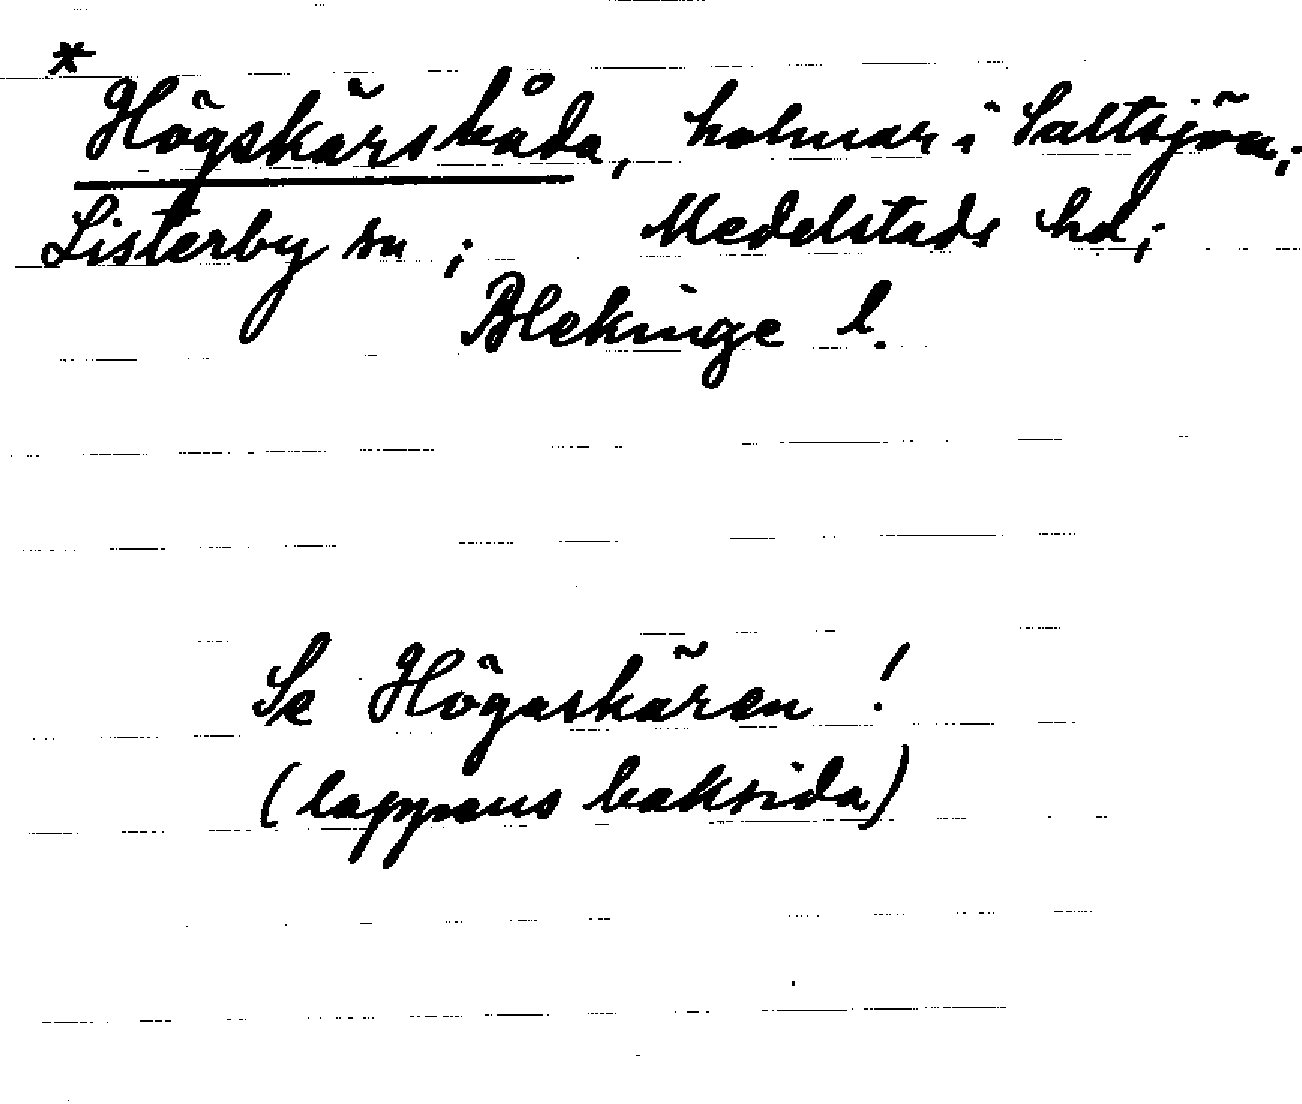 *
Högskärsbåda, holmar i Saltsjön;
Listerby sn ; Medelstads hd;
Blekinge l.
Se Högaskären !
(lappens baksida)